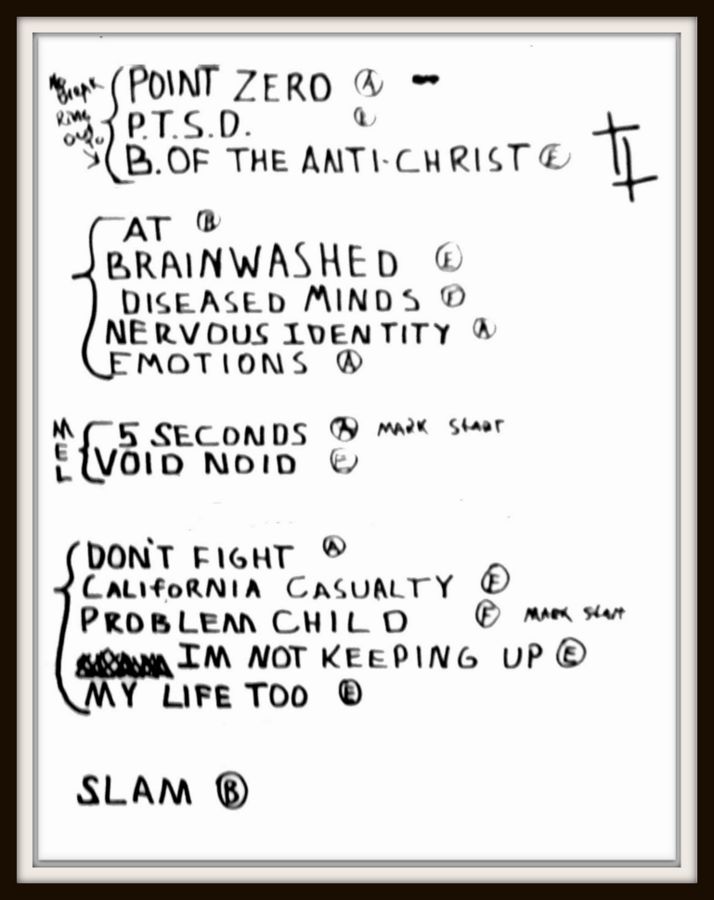 NO BREAK
RING OUT
POINT ZERO A -
P.T.S.D.
B. OF THE ANTI-CHRIST E
AT B
BRAINWASHED E
DISEASED MINDS
NERVOUS IDENTITY A
EMOTIONS A
MEL
5 SECONDS A MARK START
VOID NOID E
DON'T FIGHT A
CALIFORNIA CASUALTY E
PROBLEM CHILD F MARK START
IM NOT KEEPING UP E
MY LIFE TOO E
SLAM B